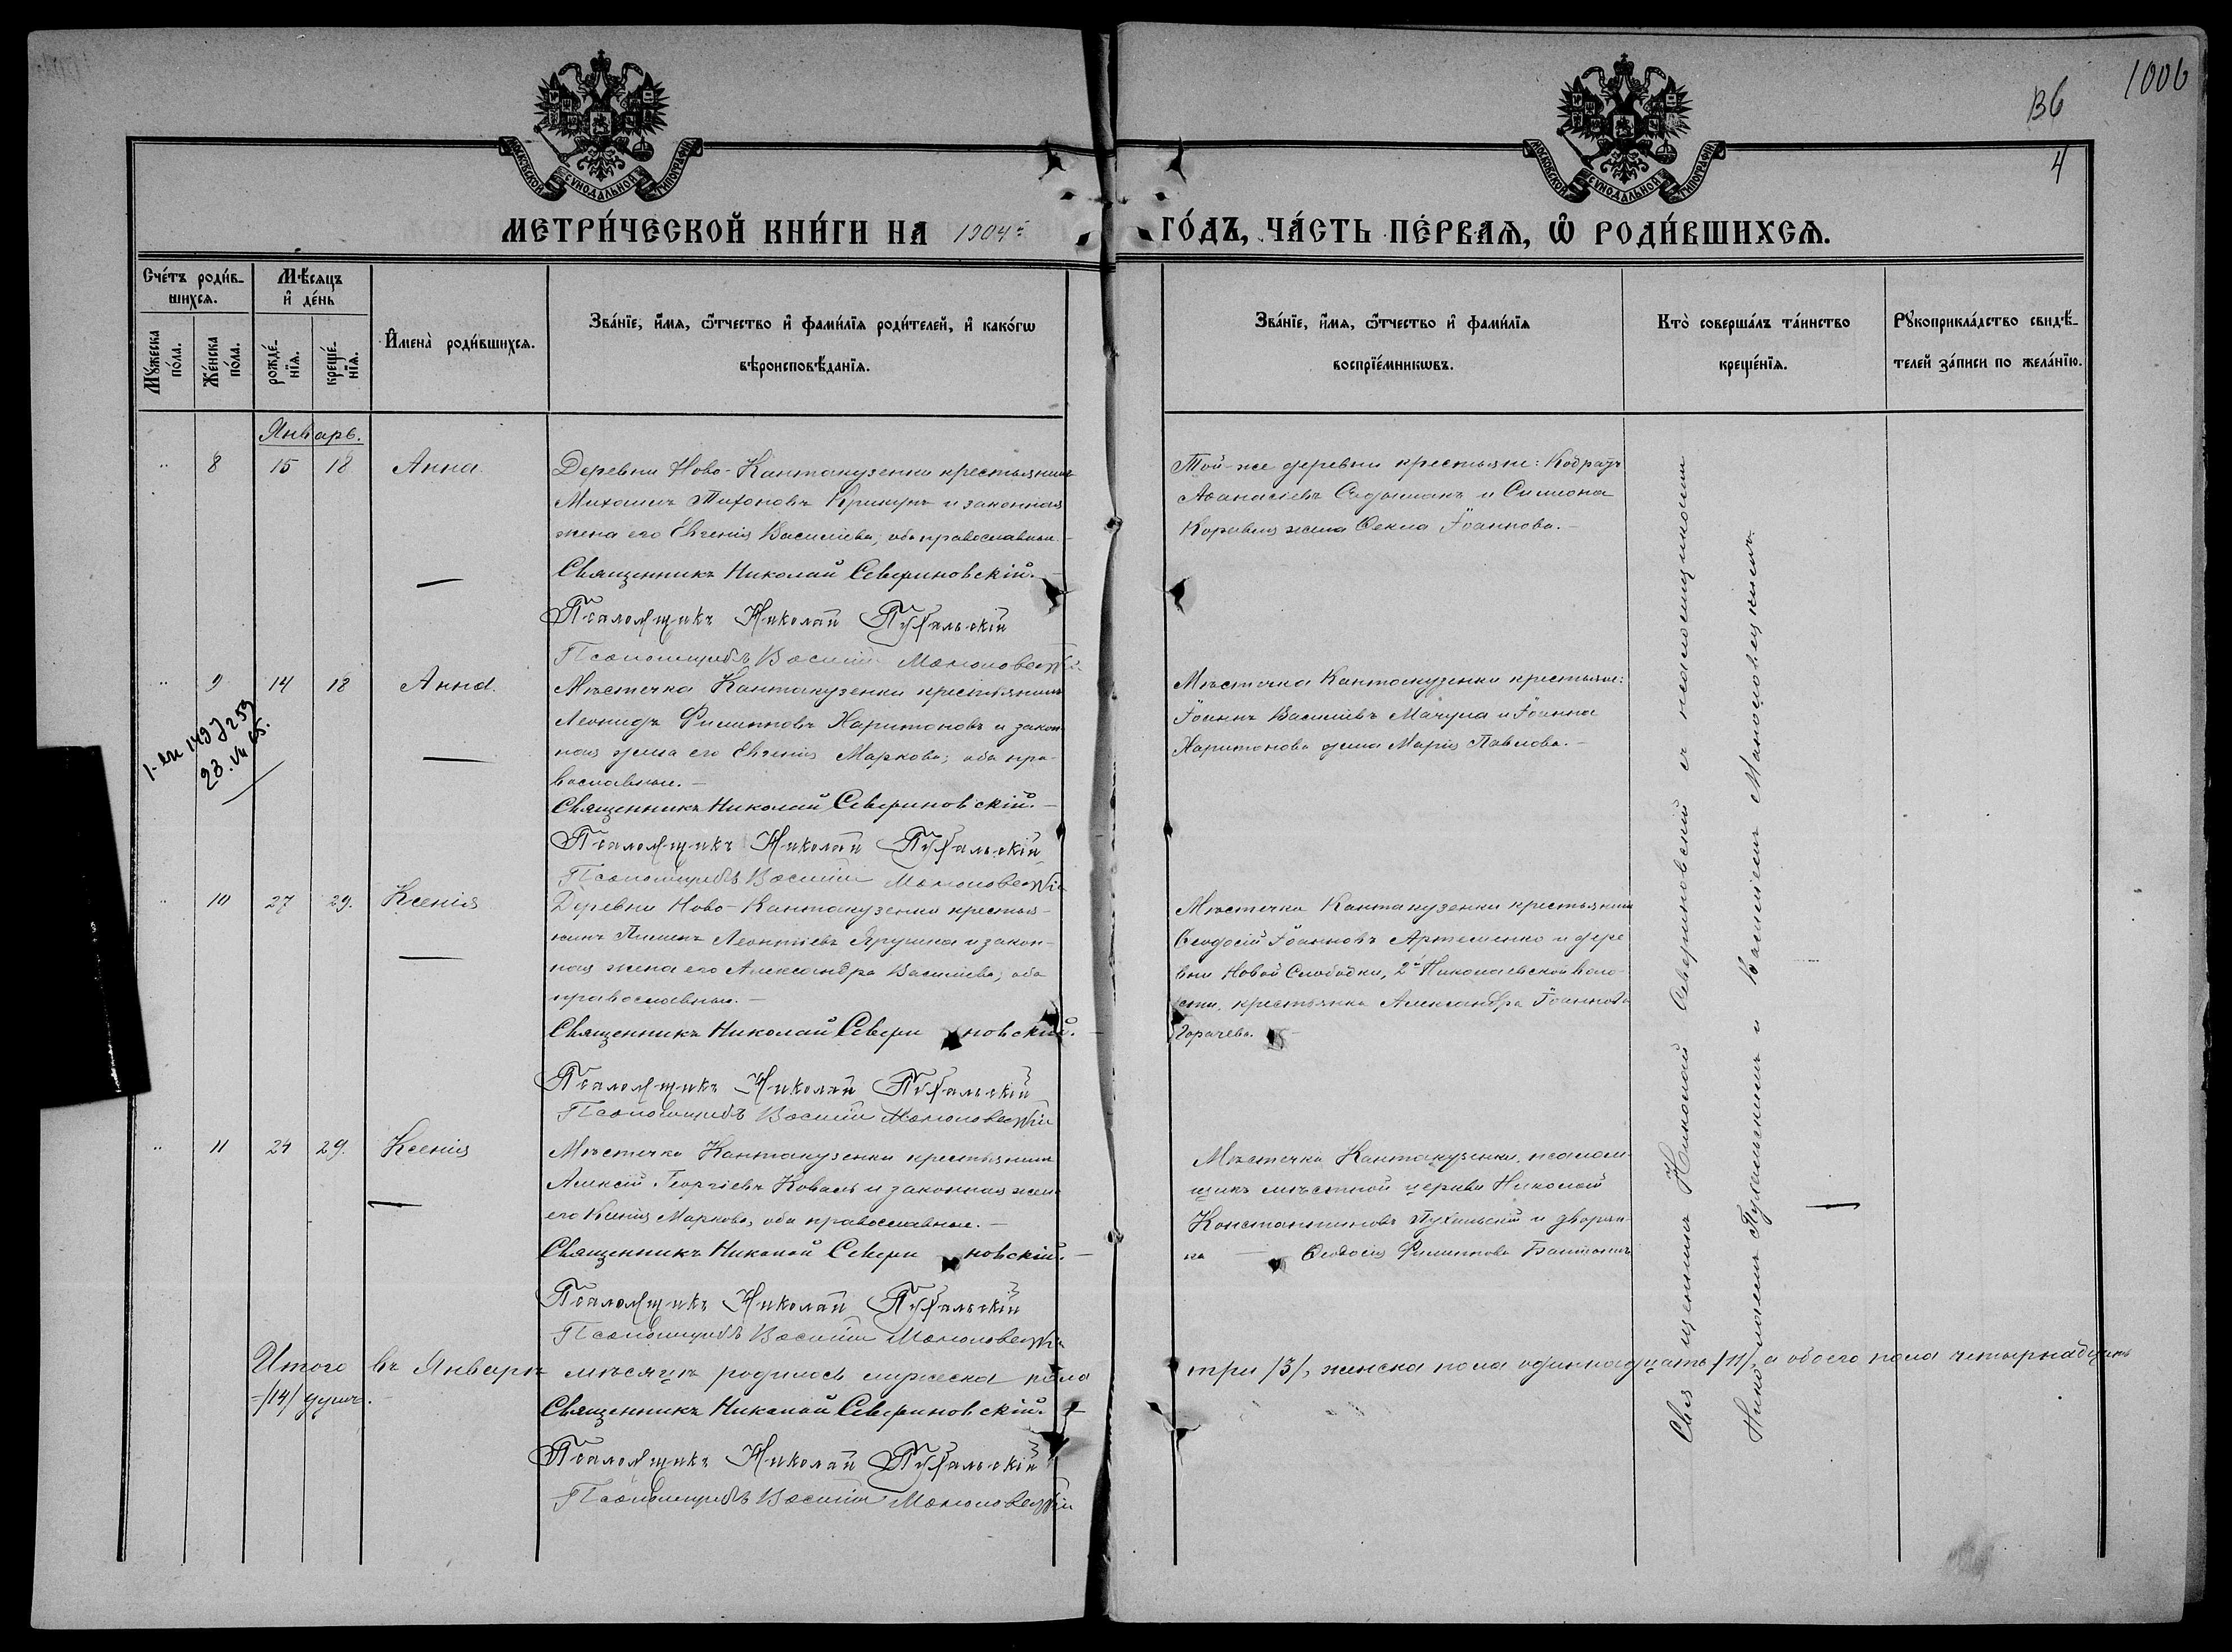 1006
В6
4
МОСКОВСКОЙ СѴНОДАЛЬНОЙ ТИПОГРАФІИ
МОСКОВСКОЙ СѴНОДАЛЬНОЙ ТИПОГРАФІИ
МЕТРИ́ЧЕСКОЙ КНИ́ГИ НА 1904й ГО́ДЪ, ЧА́СТЬ ПЕ́РВАѦ, Ѡ҆ РОДИ́ВШИХСѦ.
Сче́тъ роди́в-
шихсѧ.
Мꙋ́жеска по́ла.
Же́нска по́ла.
Мѣ́сѧцъ
и҆ де́нь
рожде́-
нїѧ.
креще́-
нїѧ.
И҆мена̀ роди́вшихсѧ.
Зва́нїе, и҆́мѧ, ѻ҆́тчество и҆ фами́лїѧ роди́телей, и҆ како́гѡ
вѣроисповѣ́данїѧ.
Зва́нїе, и҆́мѧ, ѻ҆́тчество и҆ фами́лїѧ
воспрїе́мникѡвъ.
Кто̀ соверша́лъ та́инство
креще́нїѧ.
Рꙋкоприкла́дство свидѣ́-
телей за́писи по жела́нїю.
Январь.
" 8 15 18 Анна.
Деревни Ново-Кантакузенки крестьянинъ
Михаилъ Тихоновъ Крикунъ и законная
жена его Евгенія Василіева, оба православные.
Священникъ Николай Севериновскій.
Псаломщикъ Николай Пухальскій
Псаломщикъ Василій
Той-же деревни крестьяне: Кодратъ
Аѳанасіевъ и Симеона
жена Ѳекла Іоаннова.
" 9 14 18 Анна.
23.VII 65.
Мѣстечка Кантакузенки крестьянинъ
Леонидъ Филипповъ Харитоновъ и закон-
ная жена его Евгенія Маркова; оба пра-
вославные.
Священникъ Николай Севериновскій.
Псаломщикъ Николай Пухальскій
Псаломщикъ Василій
Мѣстечка Кантакузенки крестьяне:
Іоаннъ Василіевъ Мачула и Іоанна
Харитонова жена Марія Павлова.
" 10 27 29. Ксенія
Деревни Ново-Кантакузенки крестья-
нинъ Пименъ Леонтіевъ Ярушка и закон-
ная жена его Александра Василіева, оба
православные.
Священникъ Николай Севериновскій.
Псаломщикъ Николай Пухальскій
Псаломщикъ Василій
Мѣстечка Кантакузенки крестьянинъ
Ѳеодосій Іоанновъ Артеменко и дере
вни Новой Слободки, 2й Николаевской воло-
сти, крестьянка Александра Іоаннова
Горачева.
" 11 24 29. Ксенія
Мѣстечка Кантакузенки крестьянинъ
Алексій Георгіевъ Коваль и законная жена
его Ксенія Маркова, оба православные.
Священникъ Николай Севериновскій.
Псаломщикъ Николай Пухальскій
Псаломщикъ Василій
Мѣстечка Кантакузенки, псалом-
щикъ мѣстной церкви Николай
Константиновъ Пухальскій и дворян-
ка Ѳеодосія Филиппова
Священникъ Николай Севериновскій съ псаломщиками
Николаемъ Пухальскимъ и Василіемъ
Итого въ Январѣ мѣсяцѣ родилось мужеска пола три /3/, женска пола одиннадцать /11/, а обоего пола четырнадцать
/14/ душъ.
Священникъ Николай Севериновскій.
Псаломщикъ Николай Пухальскій
Псаломщикъ Василій